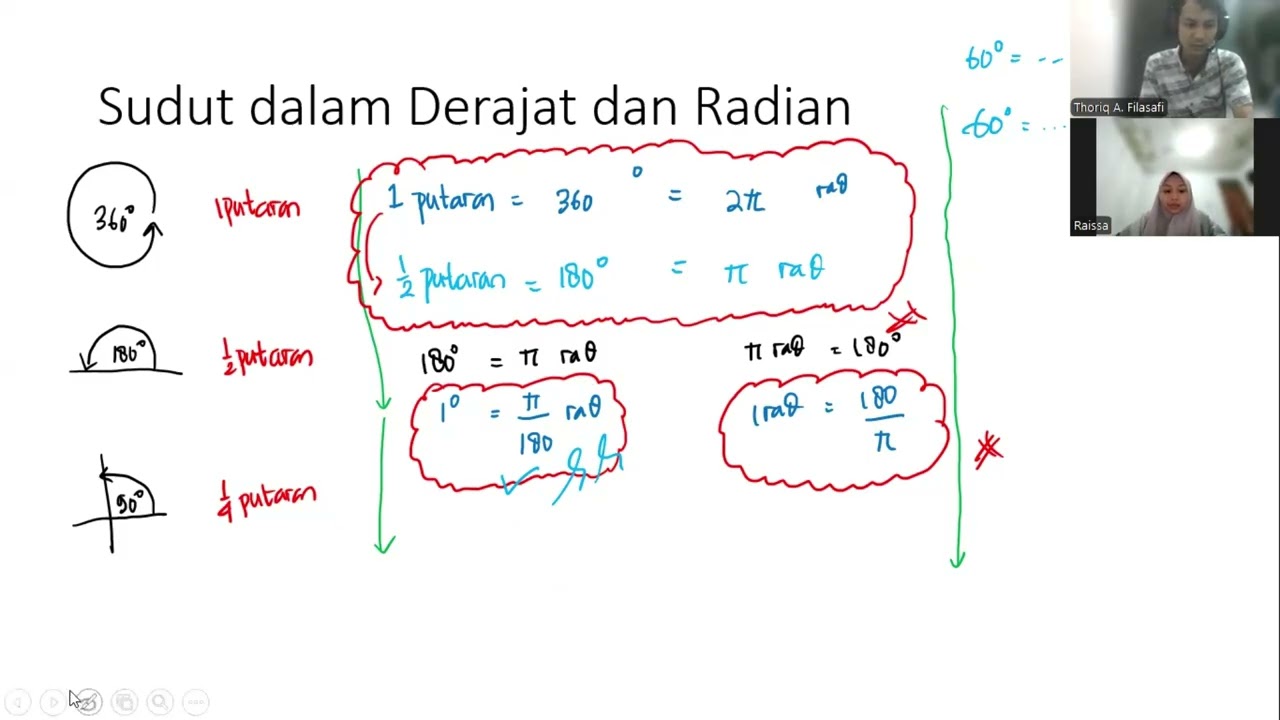 Sudut dalam Derajat dan Radian
360° 1 putaran
180° 1/2 putaran
90° 1/4 putaran
1 putaran = 360° = 2π rad
1/2 putaran = 180° = π rad
180° = π rad
1° = π/180 rad
π rad = 180°
1 rad = 180/π
60° = ...
60° = ...
Thoriq A. Filasafi
Raissa